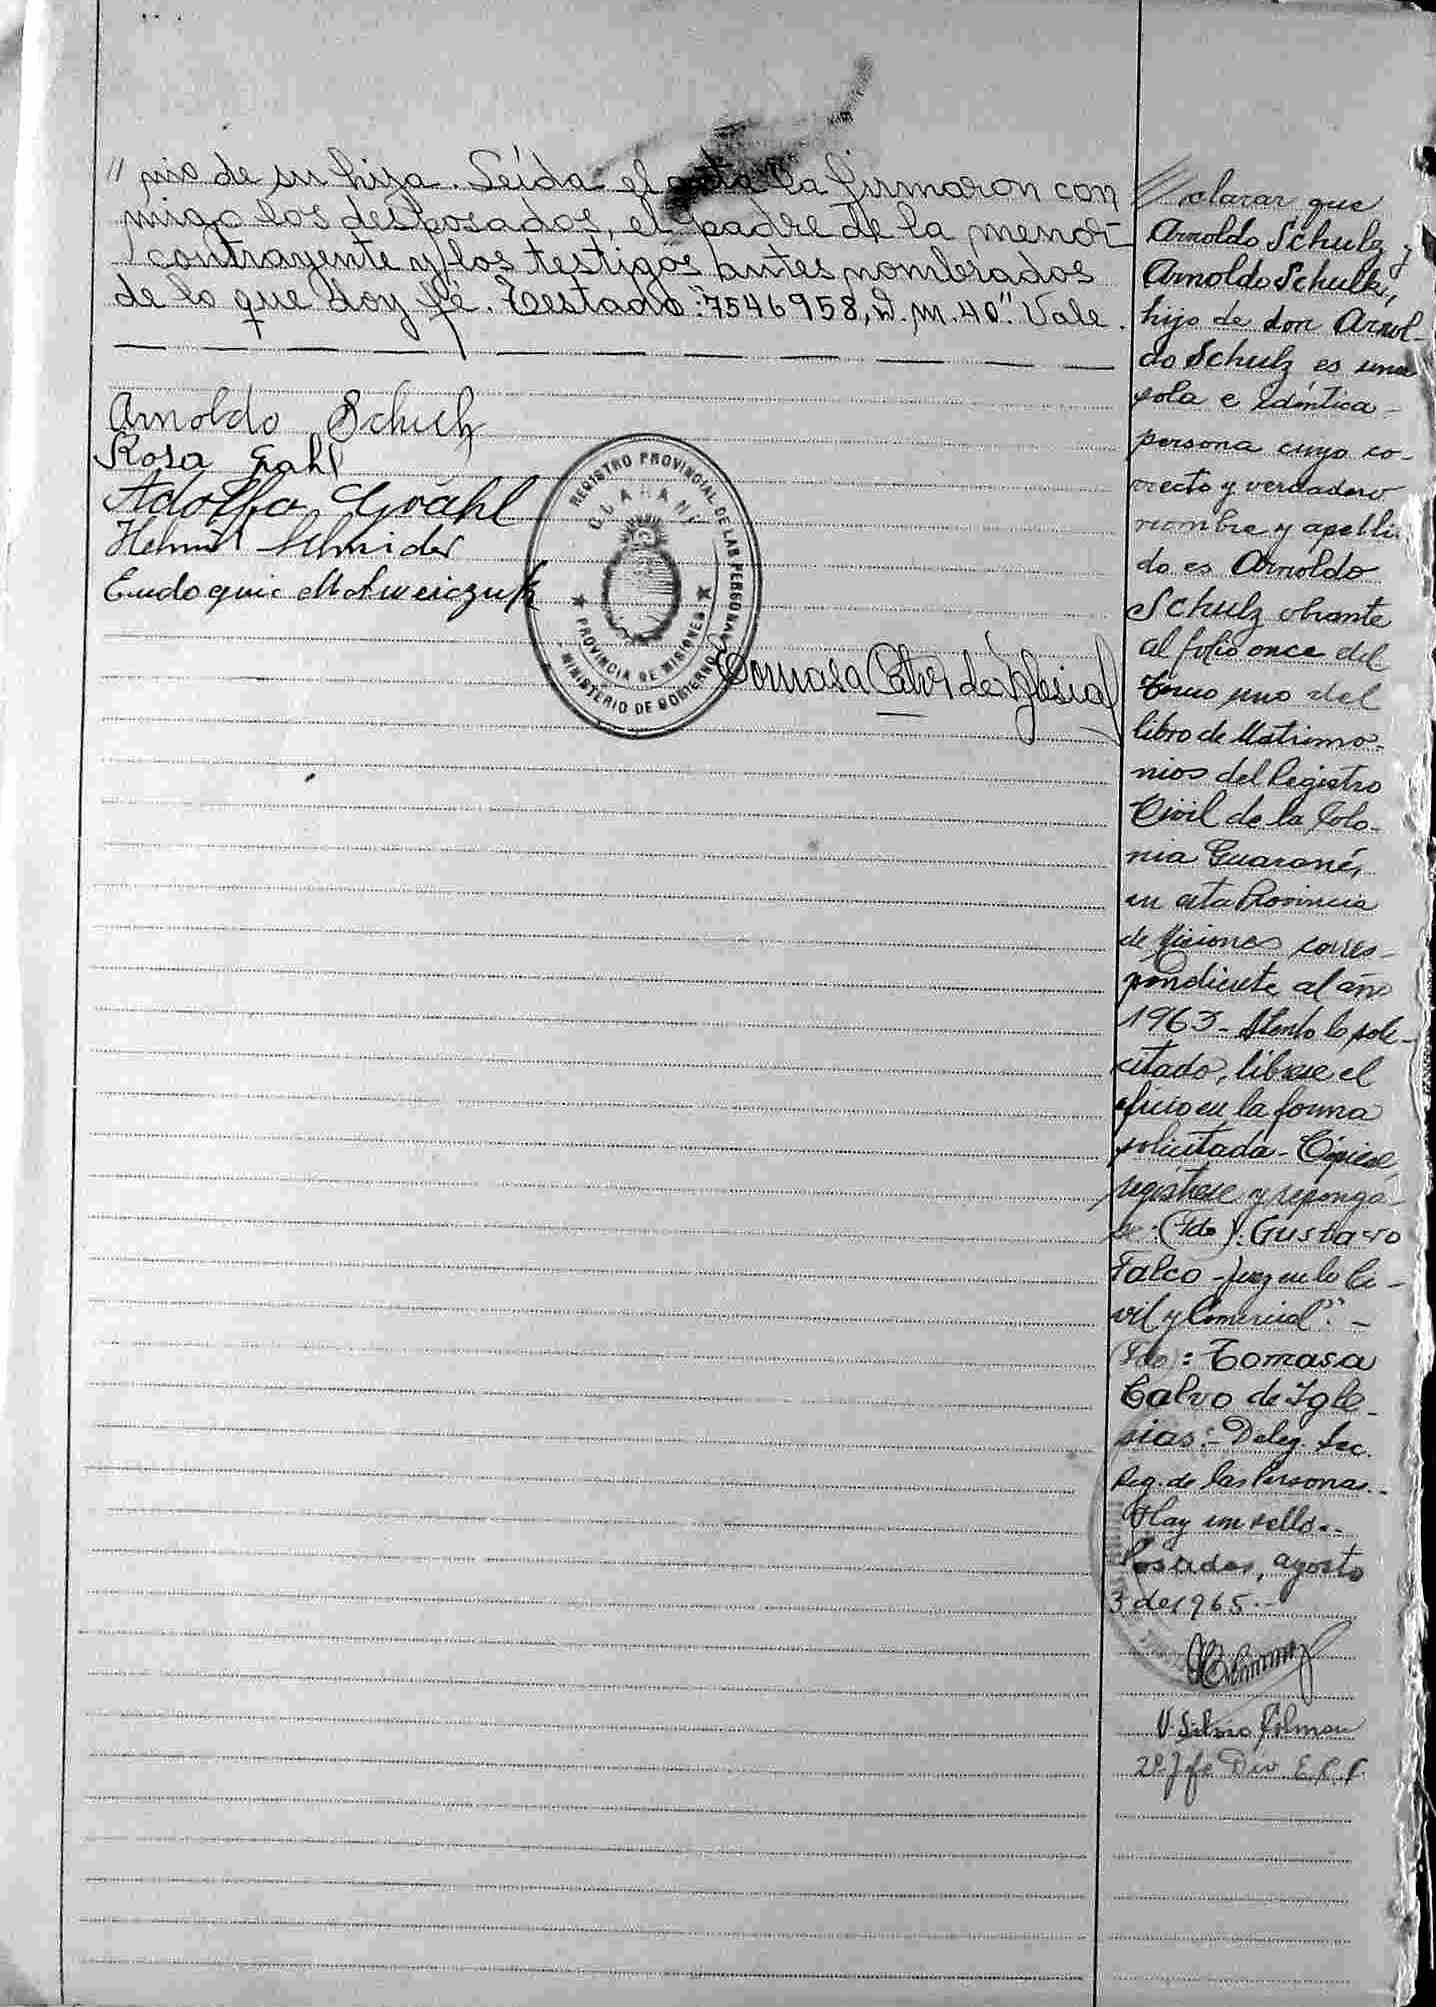 " nio de su hija. Leída el acta la firmaron con
migo los desposados, el padre de la menor
contrayente y los testigos antes nombrados
de lo que doy fé. Testado: "7546958, D. M. 40". Vale.
Arnoldo Schulz
Rosa Grahl
Adolfo Grahl
Helmut Schnider
Eudoquia
REGISTRO PROVINCIAL DE LAS PERSONAS
GUARANI
PROVINCIA DE MISIONES
MINISTERIO DE GOBIERNO
Tomasa Calvo de Iglesias
clarar que
Arnoldo Schulz y
Arnoldo Schulk,
hijo de don Arnol-
do Schulz es una
sola e idéntica
persona cuyo co-
rrecto y verdadero
nombre y apelli-
do es Arnoldo
Schulz obrante
al folio once del
tomo uno del
libro de Matrimo-
nios del Registro
Civil de la Colo-
nia Guaraní,
en esta Provincia
de Misiones corres-
pondiente al año
1963 - Atento lo soli-
citado, líbrese el
oficio en la forma
solicitada - Cópiese,
regístrese y repónga-
se. (Fdo): Gustavo
Falco - Juez en lo Ci-
vil y Comercial". -
(Fdo): Tomasa
Calvo de Igle-
sias: - Deleg. Sec.
Reg. de las Personas. -
Hay un sello. -
Posadas, agosto
3 de 1965. -
V. Silvio
2º Jefe Div. E.C.F.